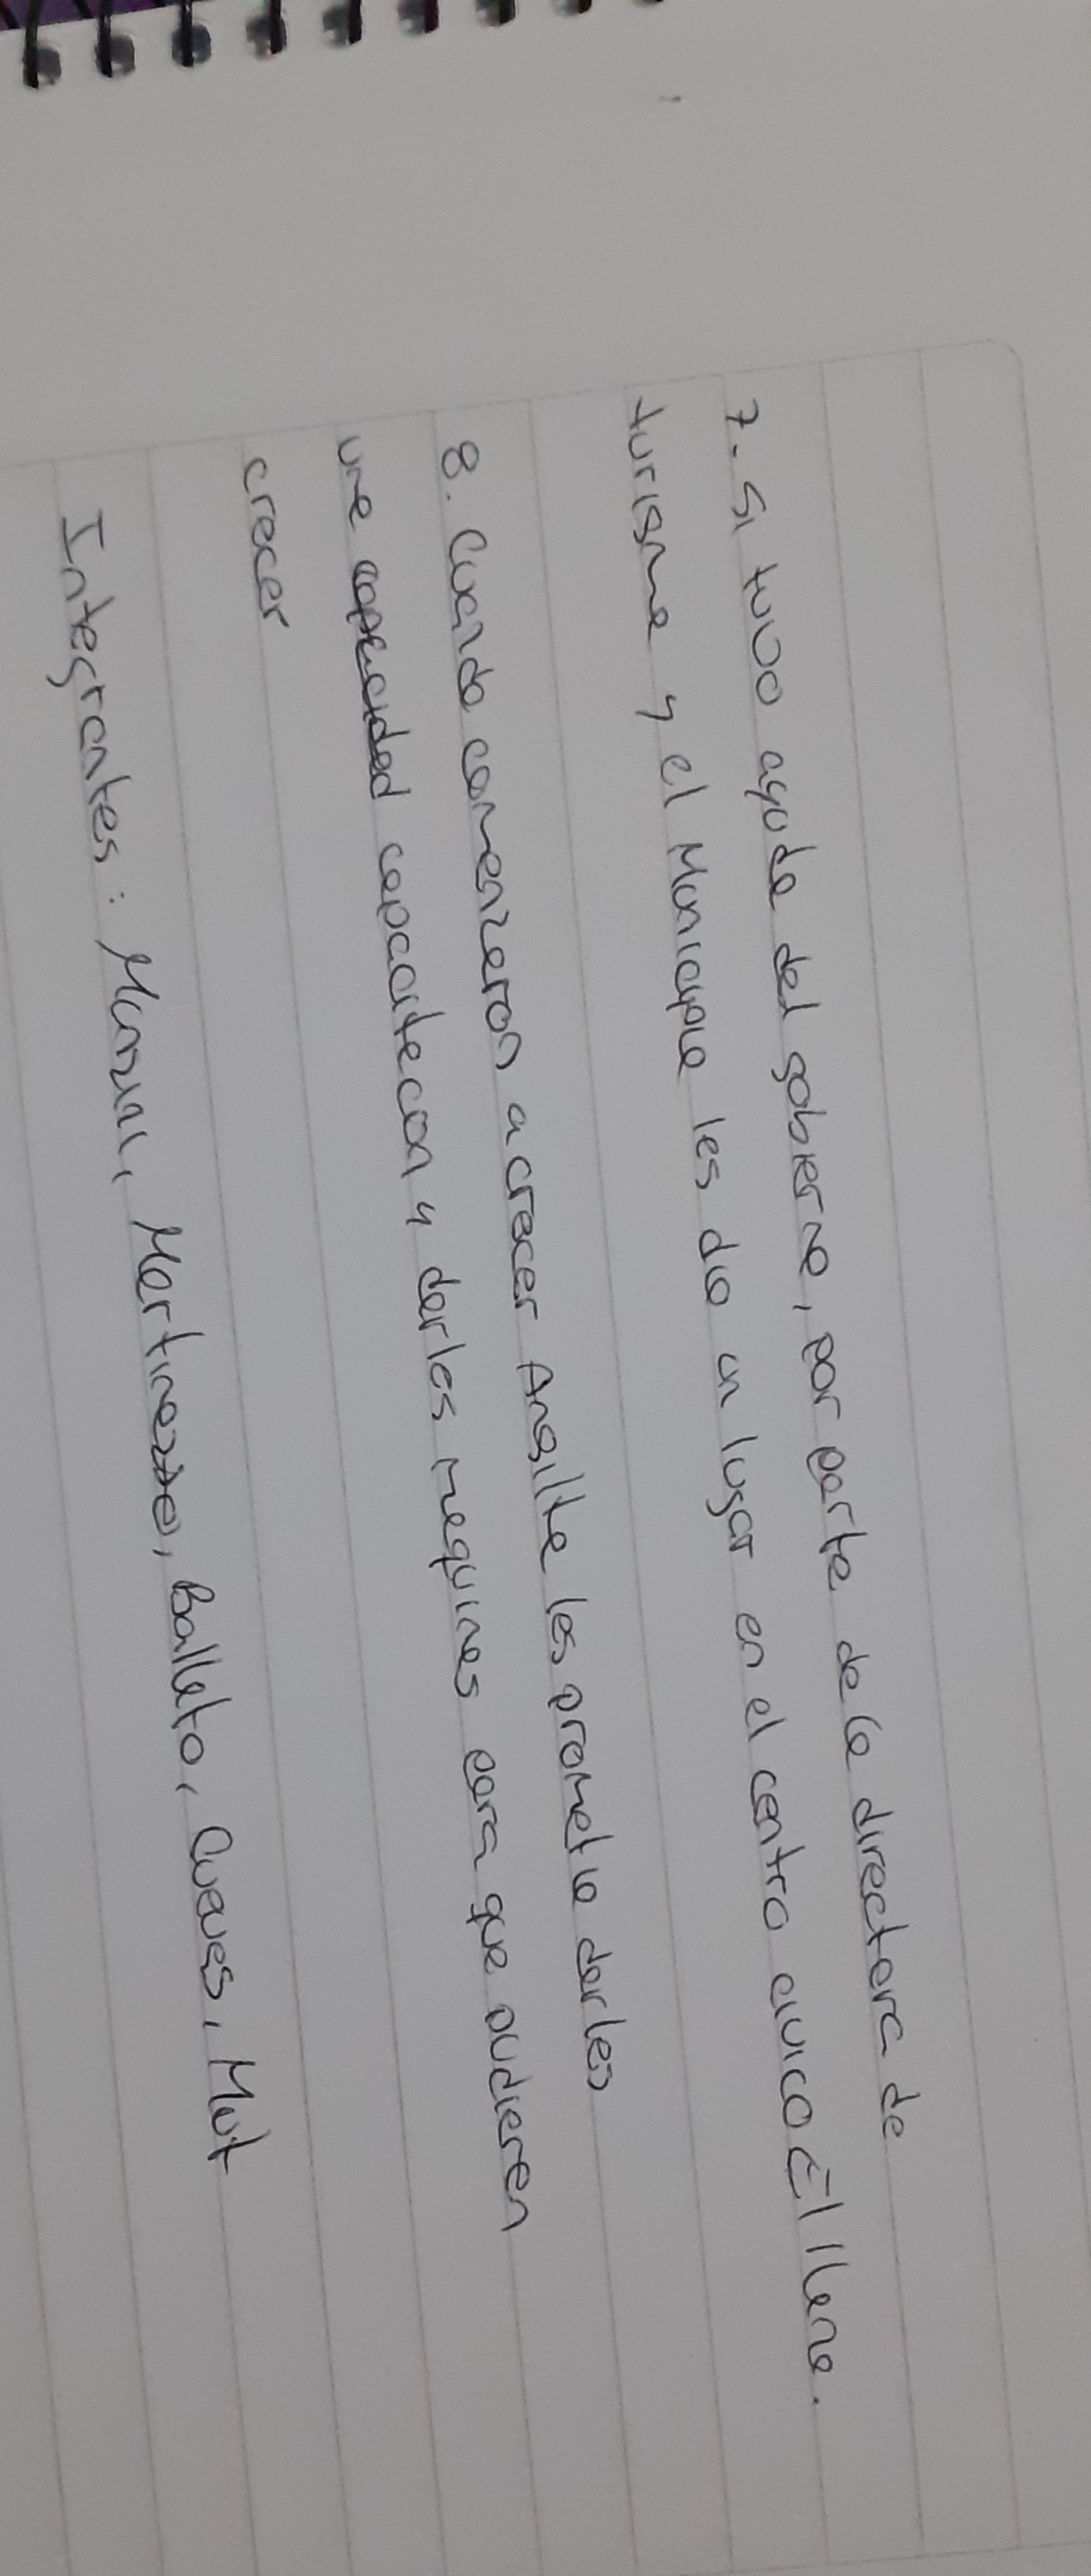 7. Si tuvo ayuda del gobierno, por parte de la directora de
turismo y el Municipio les dio un lugar en el centro civico El Llano.
8. Cuando comenzaron a crecer Ansilta les prometio darles
una capacidad capacitacion y darles maquinas para que pudieran
crecer
Integrantes: Manzini, Martinazzo, Balleto, Cuevas, Mut